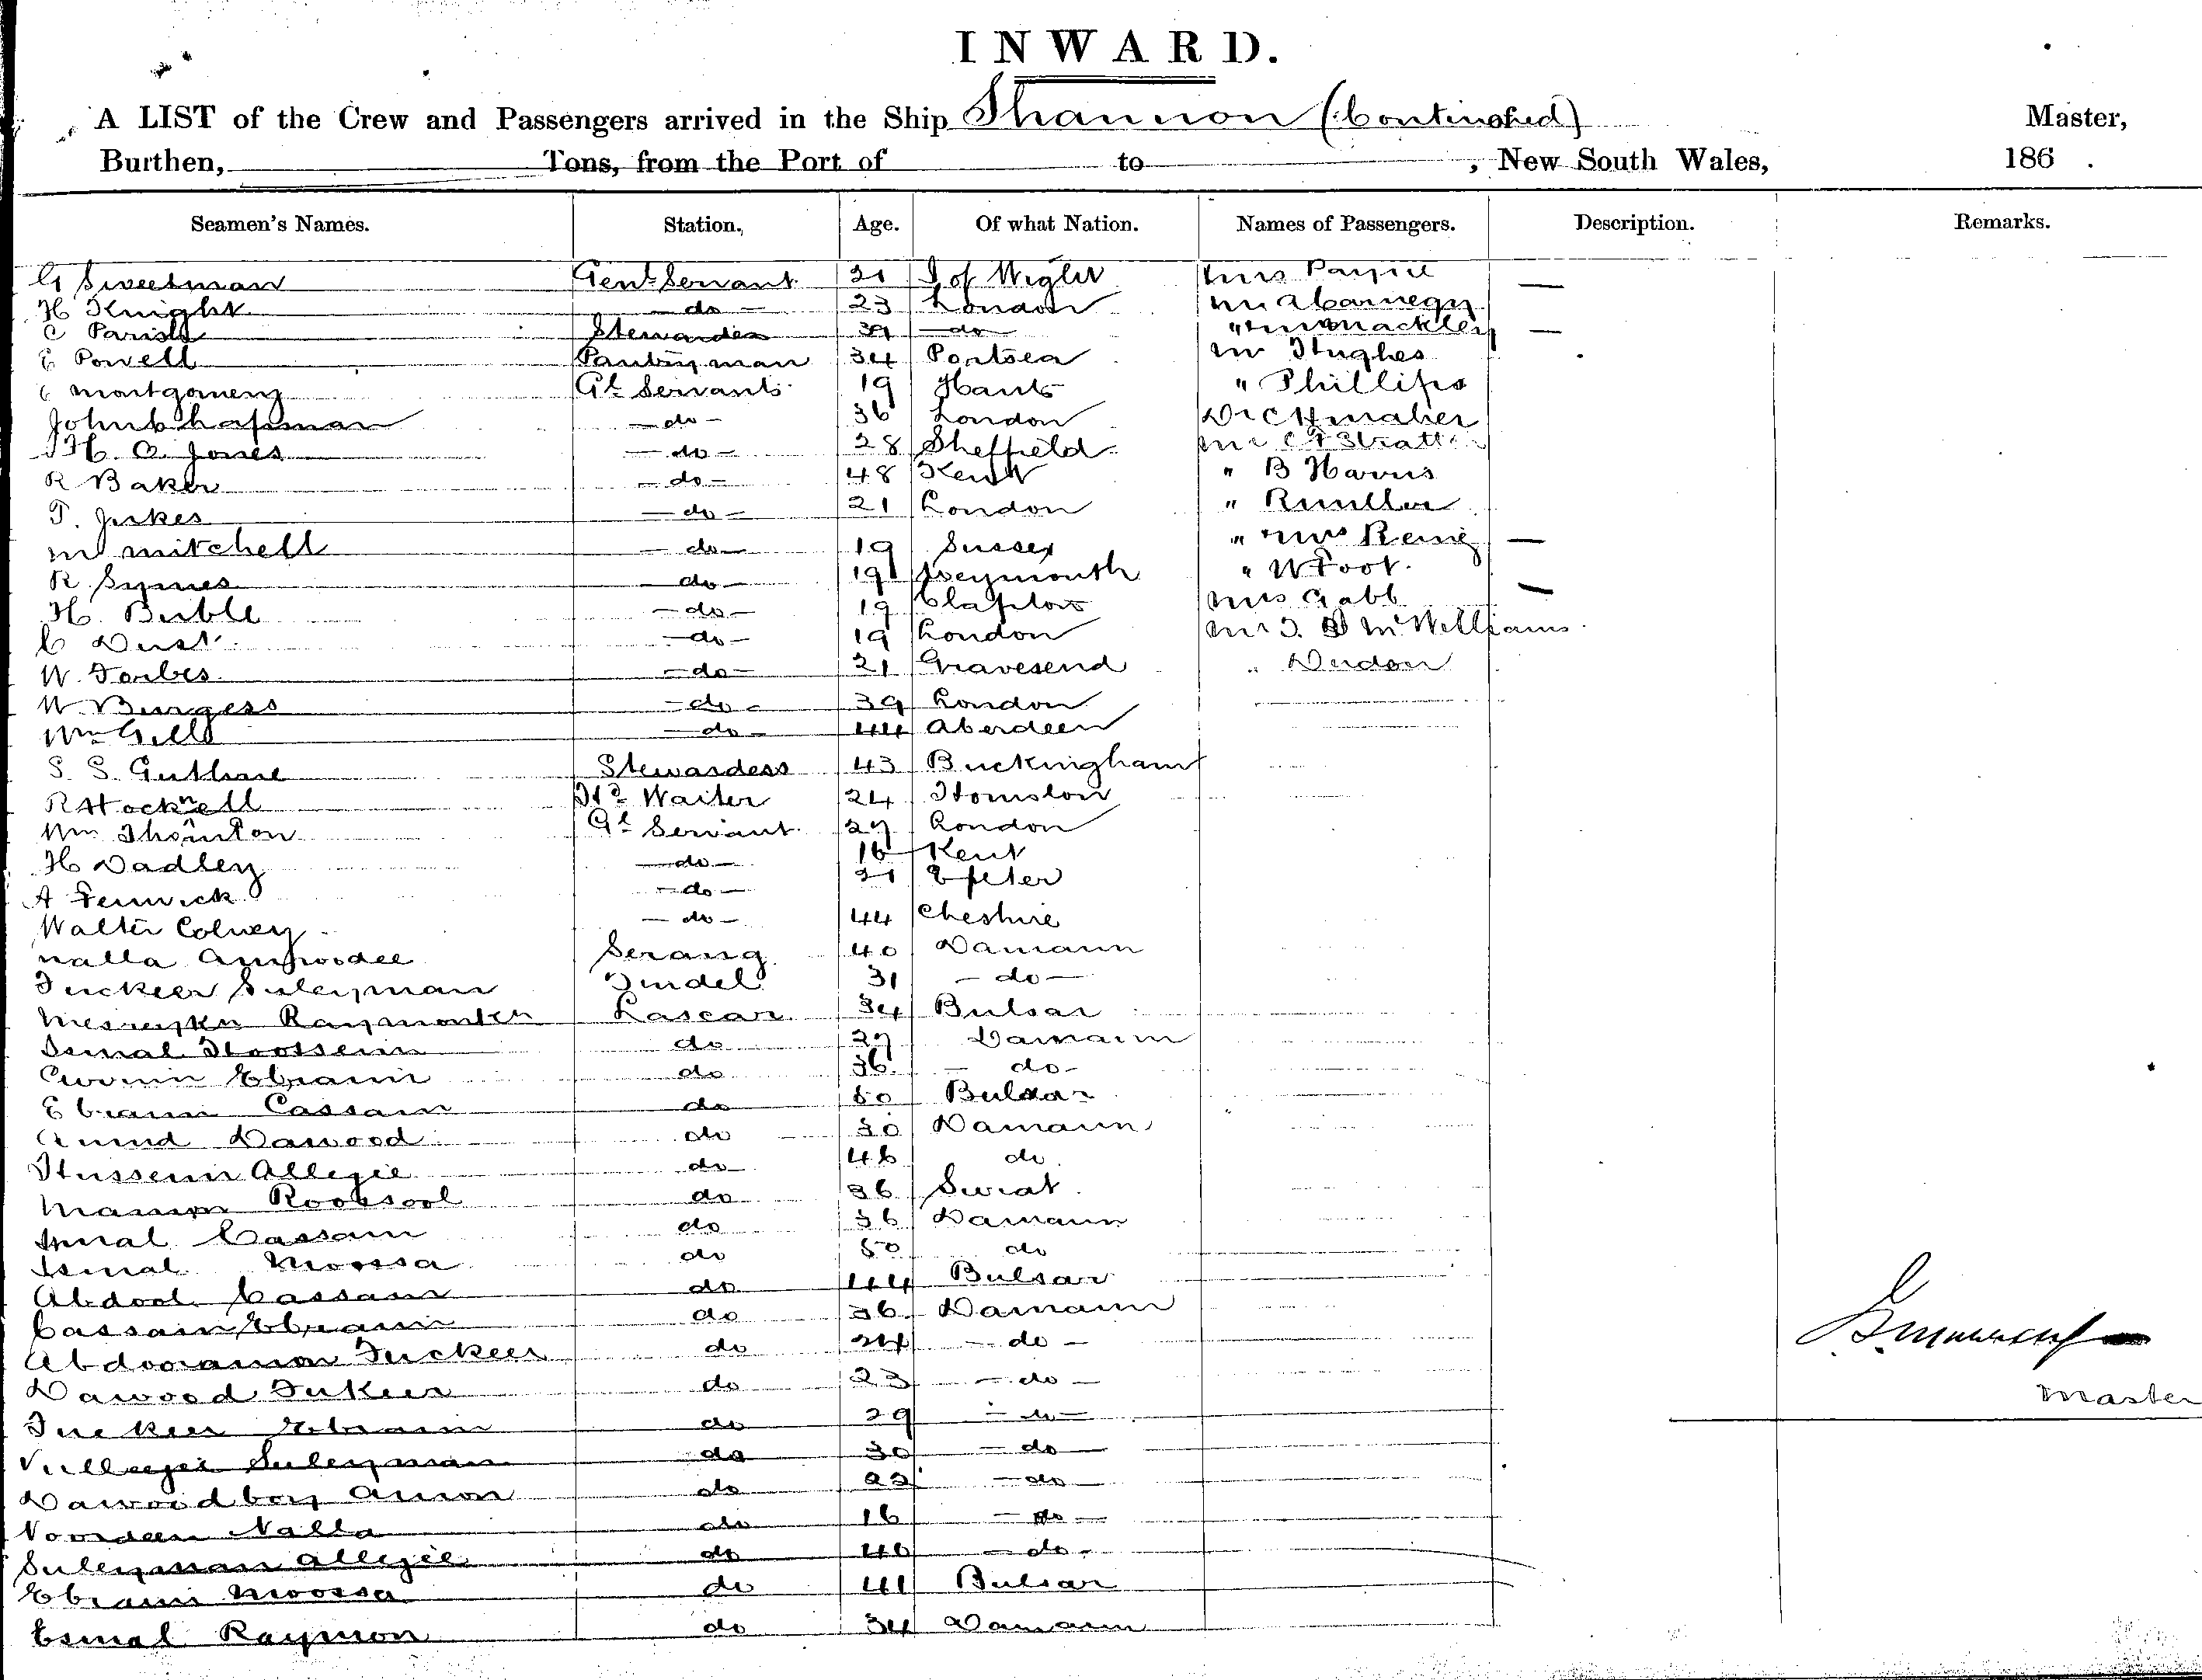 INWARD.
A LIST of the Crew and Passengers arrived in the Ship Shannon (Continued) Master,
Burthen, Tons, from the Port of to , New South Wales, 186 .
Seamen's Names. Station. Age. Of what Nation. Names of Passengers. Description. Remarks.
G Sweetman Genl Servant 21 I of Wight Miss
H Knight do 23 London Mr Abarnegy
C Parish Stewardess 39 do
E Powell Pantryman 34 Portsea Mr Hughes
C Montgomery Gl Servants 19 Hants " Phillips
John Chapman do 36 London
H. A. Jones do 28 Sheffield Mr
R Baker do 48 Kent " B Harris
T. Jukes do 21 London "
M Mitchell do 19 Sussex " Mrs
R. Symes do 19 Weymouth " W Foot.
H. Buble do 19 Clapton Mrs Gabb
C Dust do 19 London Mr J. D McWilliams
W. Forbes do 21 Gravesend "
W. Burgess do 39 London
Wm Gill do 44 Aberdeen
S. S. Guthrie Stewardess 43 Buckingham
R Hocknell Waiter 24
Wm Thornton Gl Servant 27 London
H Dadley do 16 Kent
A Fenwick do 21 Exeter
Walter Colvey do 44 Cheshire
Nalla Serang 40 Damaun
Tuckeer Suleyman Tindel 31 do
Lascar 34 Bulsar
Ismal Hoossein do 27 Damaun
Ebraim do 36 do
Ebraim Cassam do 50 Bulsar
Amud Dawood do 30 Damaun
Hussein Allegie do 46 do
Roobsool do 36 Surat
Ismal Cassam do 36 Damaun
Ismal Moossa do 50 do
Abdool Cassam do 44 Bulsar
Cassam Ebraim do 36 Damaun
Abdooraman Tuckeer do 24 do
Dawood Tukeer do 23 do
Master
Tuckeer Ebraim do 29 do
Vullejei Suleyman do 30 do
Dawoodboy Amon do 23 do
Noordeen Nalla do 16 do
Suleyman Allegie do 40 do
Ebraim Moossa do 41 Bulsar
Esmal Raymon do 34 Damaun